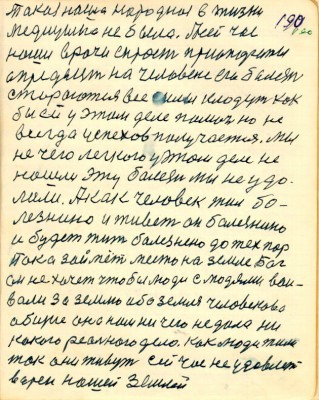 190
190
Такая наша народная в жизни
медицина не была. Лей час
наши врачи спрост приопорати
определят на человеке его болезн
стараются все силы кладут как
бы ей у этом деле помоч но не
всегда успехов получается. Мы
не чего легкого у этом деле не
нашли эту болезн мы не удо-
лили. А как человек жил бо-
лезнино и живет он болезнино
и будет жить болезнено до тех пор
пока займет место на земле Бог
он не хочет чтобы люди с людями вое-
вали за землю або земля человекова
общие она нам ни чего не дала ни
какого реального дела. Как люди жили
так они живут сей час не удовлет
варен нашей Землей